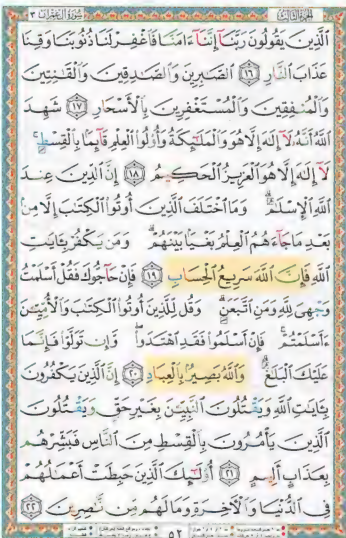 سُورَةُ آلِ عِمْرَانَ ٣
الجُزْءُ الثَّالِثُ
ٱلَّذِينَ يَقُولُونَ رَبَّنَآ إِنَّنَآ ءَامَنَّا فَٱغْفِرْ لَنَا ذُنُوبَنَا وَقِنَا
عَذَابَ ٱلنَّارِ ١٦ ٱلصَّٰبِرِينَ وَٱلصَّٰدِقِينَ وَٱلْقَٰنِتِينَ
وَٱلْمُنفِقِينَ وَٱلْمُسْتَغْفِرِينَ بِٱلْأَسْحَارِ ١٧ شَهِدَ
ٱللَّهُ أَنَّهُۥ لَآ إِلَٰهَ إِلَّا هُوَ وَٱلْمَلَٰٓئِكَةُ وَأُو۟لُوا۟ ٱلْعِلْمِ قَآئِمًۢا بِٱلْقِسْطِ ۚ
لَآ إِلَٰهَ إِلَّا هُوَ ٱلْعَزِيزُ ٱلْحَكِيمُ ١٨ إِنَّ ٱلدِّينَ عِندَ
ٱللَّهِ ٱلْإِسْلَٰمُ ۗ وَمَا ٱخْتَلَفَ ٱلَّذِينَ أُوتُوا۟ ٱلْكِتَٰبَ إِلَّا مِنۢ
بَعْدِ مَا جَآءَهُمُ ٱلْعِلْمُ بَغْيًۢا بَيْنَهُمْ ۗ وَمَن يَكْفُرْ بِـَٔايَٰتِ
ٱللَّهِ فَإِنَّ ٱللَّهَ سَرِيعُ ٱلْحِسَابِ ١٩ فَإِنْ حَآجُّوكَ فَقُلْ أَسْلَمْتُ
وَجْهِىَ لِلَّهِ وَمَنِ ٱتَّبَعَنِ ۗ وَقُل لِّلَّذِينَ أُوتُوا۟ ٱلْكِتَٰبَ وَٱلْأُمِّيِّـۧنَ
ءَأَسْلَمْتُمْ ۚ فَإِنْ أَسْلَمُوا۟ فَقَدِ ٱهْتَدَوا۟ ۖ وَّإِن تَوَلَّوْا۟ فَإِنَّمَا
عَلَيْكَ ٱلْبَلَٰغُ ۗ وَٱللَّهُ بَصِيرٌۢ بِٱلْعِبَادِ ٢٠ إِنَّ ٱلَّذِينَ يَكْفُرُونَ
بِـَٔايَٰتِ ٱللَّهِ وَيَقْتُلُونَ ٱلنَّبِيِّـۧنَ بِغَيْرِ حَقٍّ وَيَقْتُلُونَ
ٱلَّذِينَ يَأْمُرُونَ بِٱلْقِسْطِ مِنَ ٱلنَّاسِ فَبَشِّرْهُم
بِعَذَابٍ أَلِيمٍ ٢١ أُو۟لَٰٓئِكَ ٱلَّذِينَ حَبِطَتْ أَعْمَٰلُهُمْ
فِى ٱلدُّنْيَا وَٱلْءَاخِرَةِ وَمَا لَهُم مِّن نَّٰصِرِينَ ٢٢
٥٢